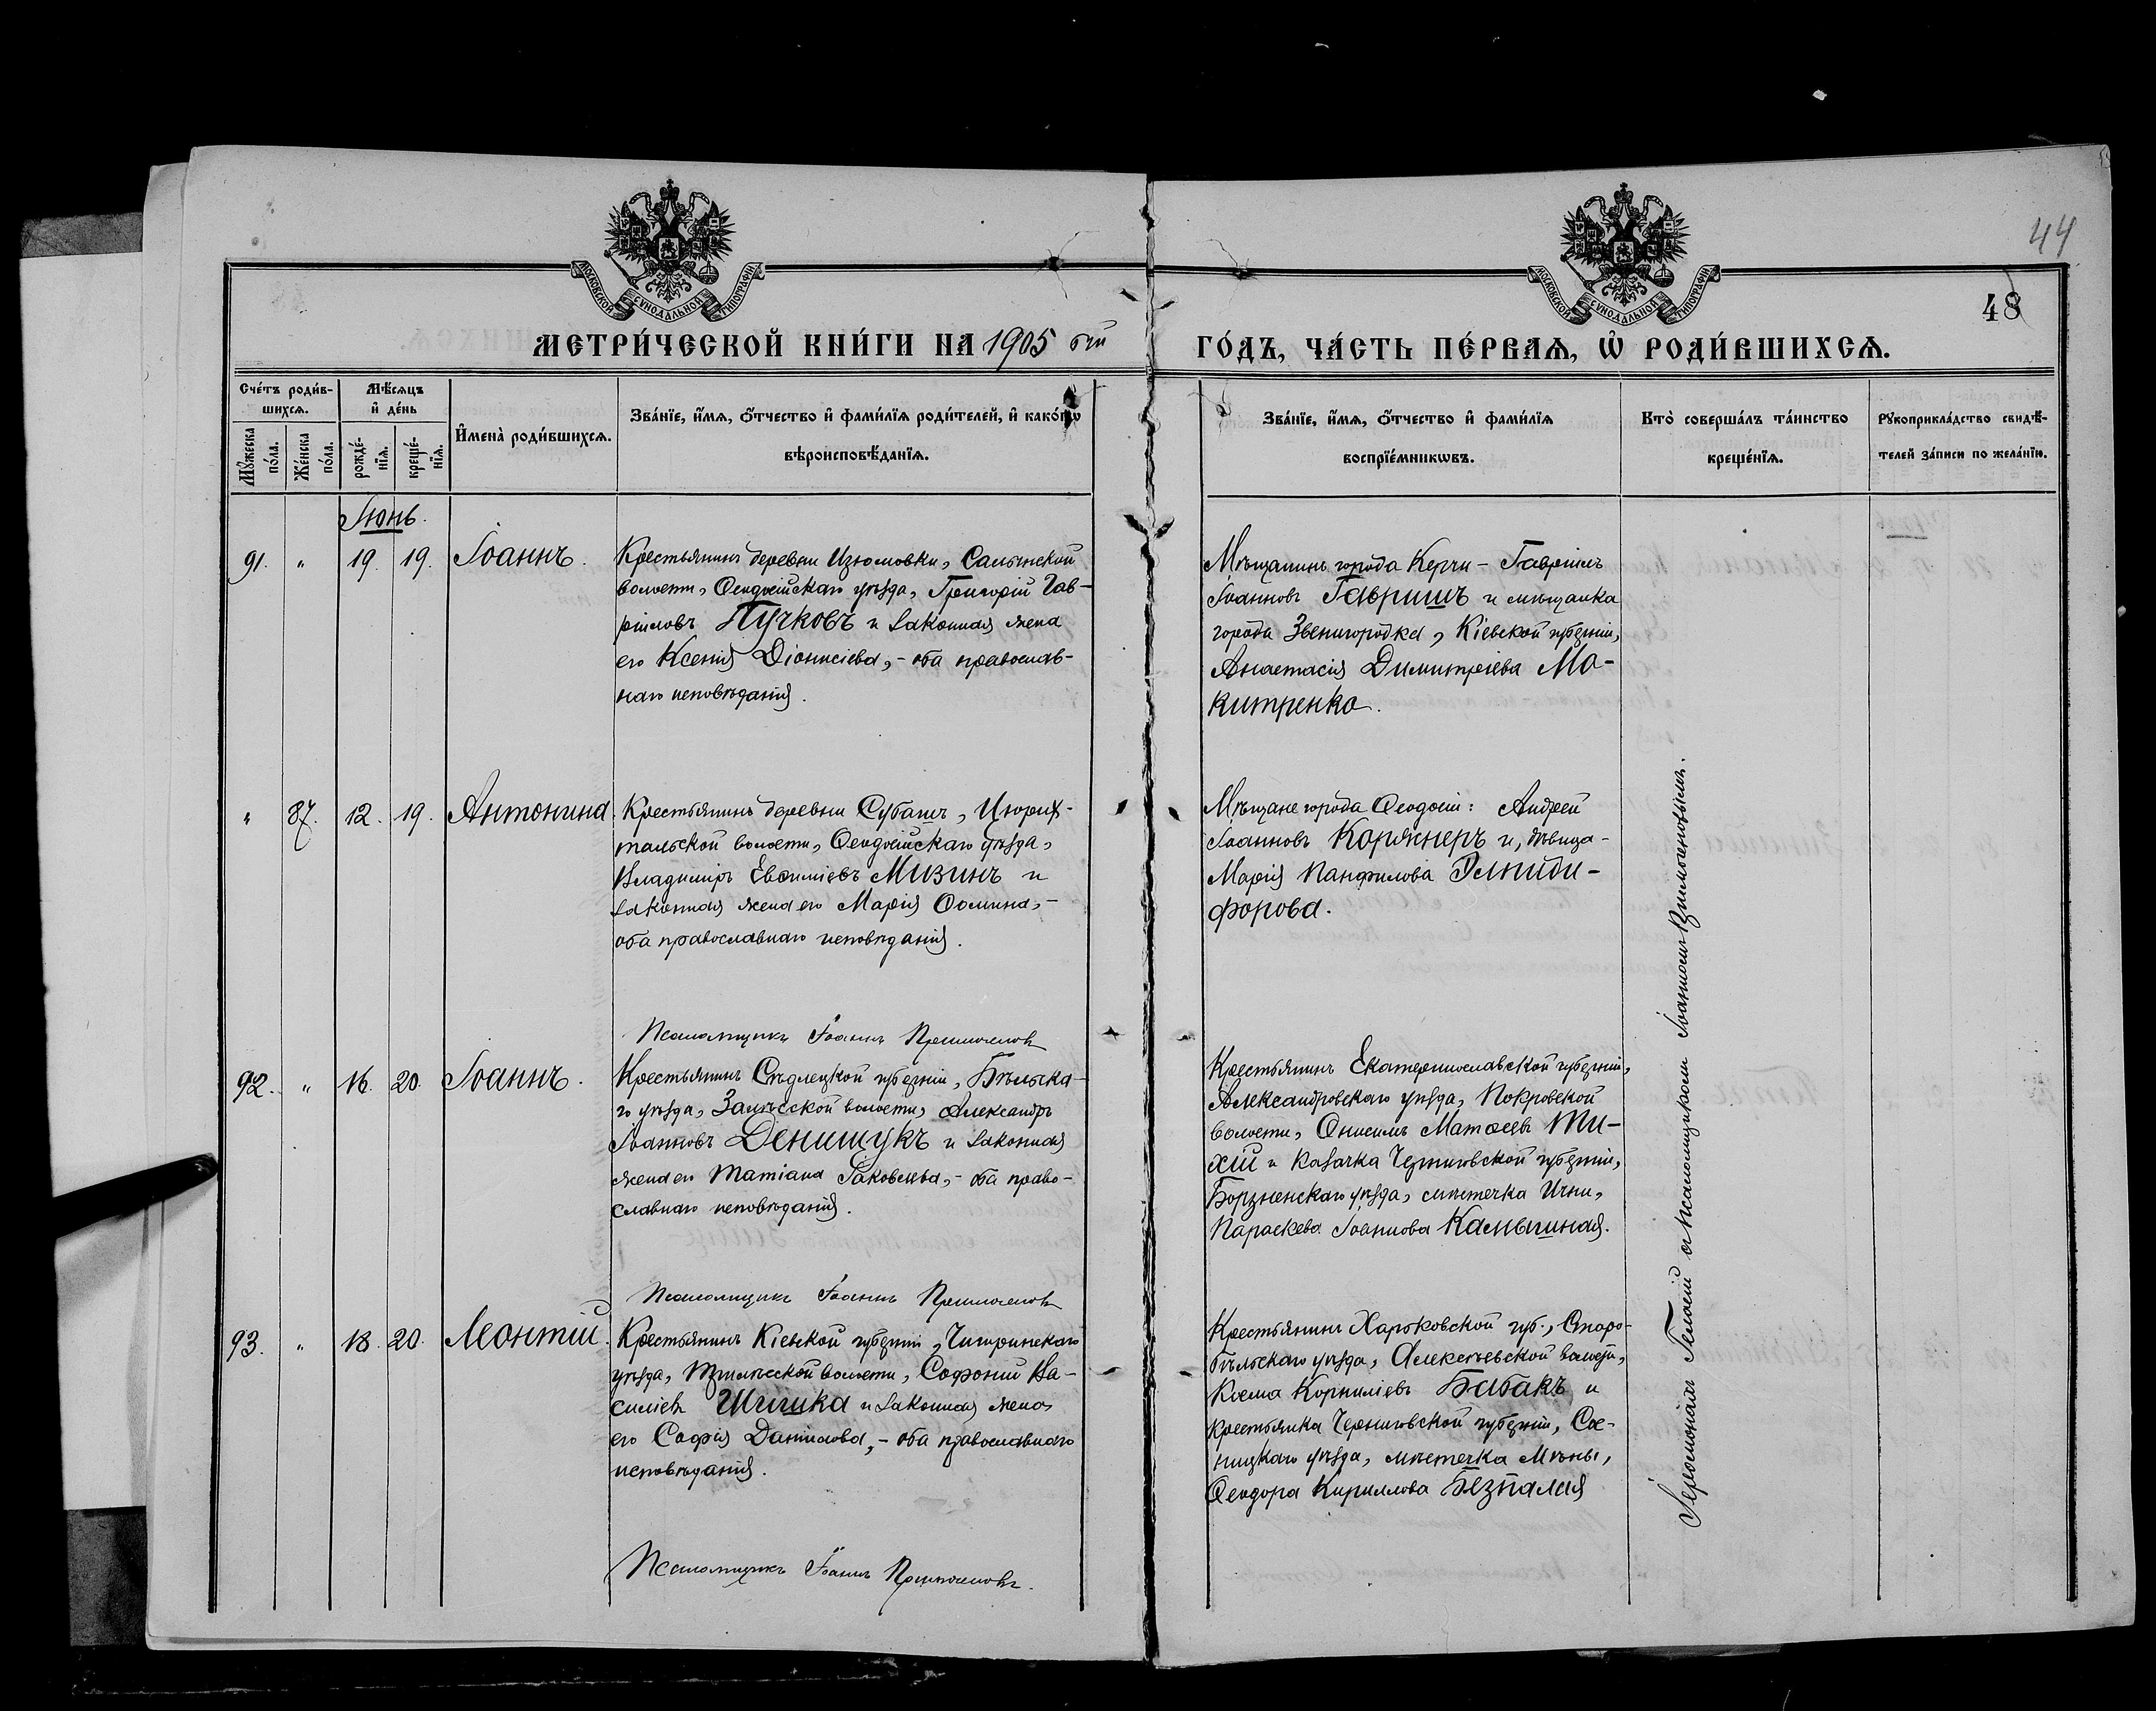 44
48
МОСКОВСКОЙ СѴНОДАЛЬНОЙ ТИПОГРАФІИ
МОСКОВСКОЙ СѴНОДАЛЬНОЙ ТИПОГРАФІИ
МЕТРИ́ЧЕСКОЙ КНИ́ГИ НА 1905 ый
ГО́ДЪ, ЧА́СТЬ ПЕ́РВАѦ, Ѡ҆ РОДИ́ВШИХСѦ.
Сче́тъ роди́в-
шихсѧ.
Мꙋ́жеска по́ла.
Же́нска по́ла.
Мѣ́сѧцъ
и҆ де́нь
рожде́-
нїѧ.
креще́-
нїѧ.
И҆мена̀ роди́вшихсѧ.
Зва́нїе, и҆́мѧ, ѻ҆́тчество и҆ фами́лїѧ роди́телей, и҆ како́гѡ
вѣроисповѣ́данїѧ.
Зва́нїе, и҆́мѧ, ѻ҆́тчество и҆ фами́лїѧ
воспрїе́мникѡвъ.
Кто̀ соверша́лъ та́инство
креще́нїѧ.
Рꙋкоприкла́дство свидѣ́-
телей за́писи по жела́нїю.
Іюнь.
91. " 19. 19. Іоаннъ.
Крестьянинъ деревни Изюмовки, Салынской
волости, Ѳеодосійскаго уѣзда, Григорій Гав-
ріиловъ Пучковъ и законная жена
его Ксенія Діонисіева, - оба православ-
наго исповѣданія.
Мѣщанинъ города Керчи - Гавріилъ
Іоанновъ Гавришъ и мѣщанка
города Звенигородка, Кіевской губерніи,
Анастасія Димитріева Ма-
китренко.
" 87. 12. 19. Антонина.
Крестьянинъ деревни Субашъ, Цюрих-
тальской волости, Ѳеодосійскаго уѣзда,
Владиміръ Евѳиміевъ Мизинъ и
законная жена его Марія Ѳомина, -
оба православнаго исповѣданія.
Мѣщане города Ѳеодосіи: Андрей
Іоанновъ Коржнеръ и, дѣвица -
Марія Панфилова Элпиди-
форова.
Псаломщикъ Іоаннъ
92. " 16. 20. Іоаннъ.
Крестьянинъ Сѣдлецкой губерніи, Бѣльска-
го уѣзда, Залѣсской волости, Александръ
Іоанновъ Денищукъ и законная
жена его Татіана Іаковлева, - оба право-
славнаго исповѣданія.
Крестьянинъ Екатеринославской губерніи,
Александровскаго уѣзда, Покровской
волости, Онисимъ Матѳеевъ Ти-
хій и казачка Черниговской губерніи,
Борзненскаго уѣзда, мѣстечка Ични,
Параскева Іоаннова Камышная.
Псаломщикъ Іоаннъ
93. " 18. 20. Леонтій.
Крестьянинъ Кіевской губерніи, Чигиринскаго
уѣзда, волости, Софоній Ва-
силіевъ Шишка и законная жена
его Софія Даніилова, - оба православнаго
исповѣданія.
Крестьянинъ Харьковской губ., Старо-
бѣльскаго уѣзда, Алексѣевской волости,
Косма Корниліевъ Бабакъ и
крестьянка Черниговской губерніи, Сос-
ницкаго уѣзда, мѣстечка Мѣны,
Ѳеодора Кириллова Безпалая
Псаломщикъ Іоаннъ
Іеромонахъ съ псаломщикомъ Іоанномъ